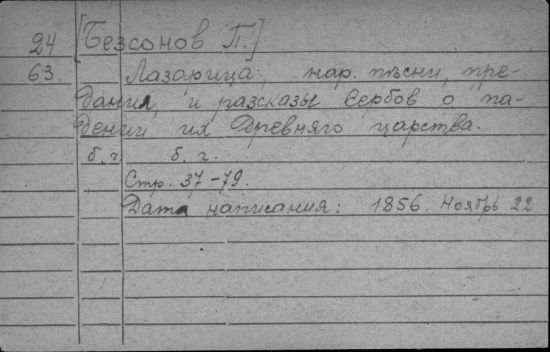 24 [Безсонов П.]
63. Лазарица, нар. пѣсни, пре-
дания, и разсказы Сербов о па-
дении их Древняго царства.
б. г. б. г.
Стр. 37-79.
Дата написания: 1856. Ноябрь 22